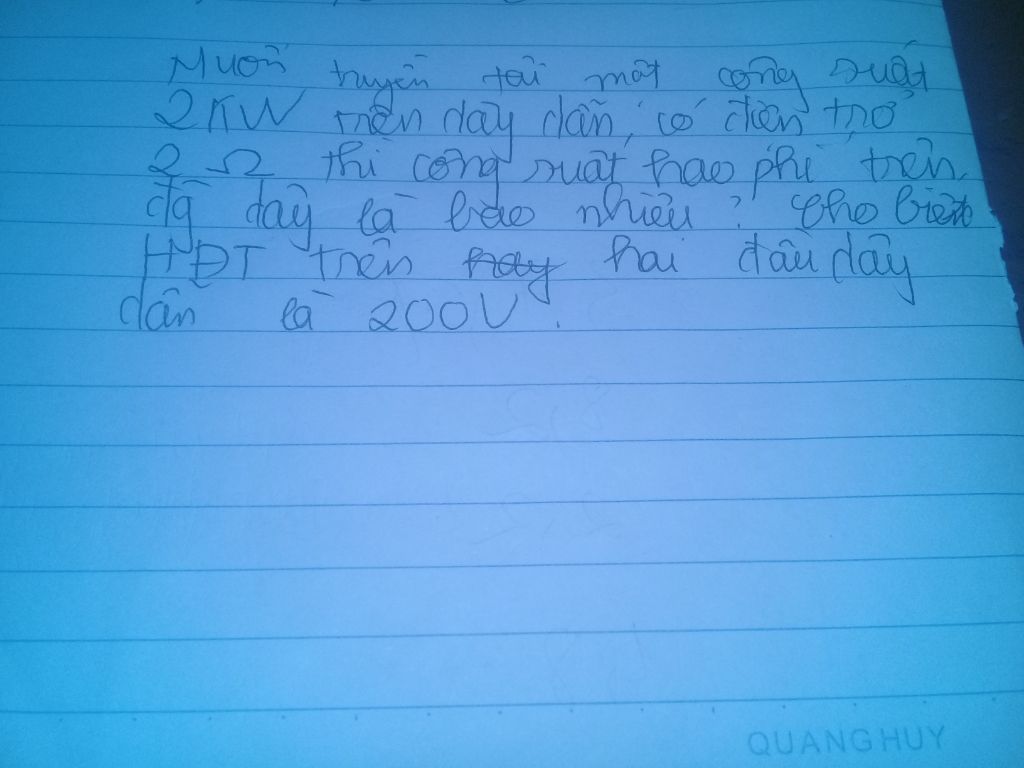 Muốn truyền tải một công suất
2KW trên dây dẫn, có điện trở
2 Ω thì công suất hao phí trên
đg dây là bao nhiêu? Cho biết
HĐT trên hai đầu dây
dẫn là 200V.
QUANG HUY